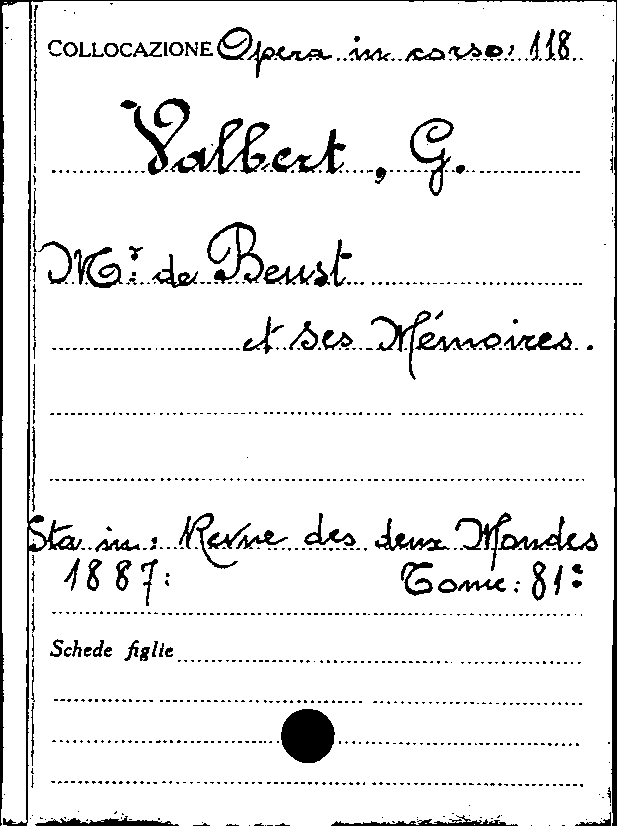 COLLOCAZIONE Opera in corso: 118
Valbert, G.
Mr. de Beust
et ses Mémoires.
Sta in: Revue des deux Mondes
1887: Tome: 81e
Schede figlie